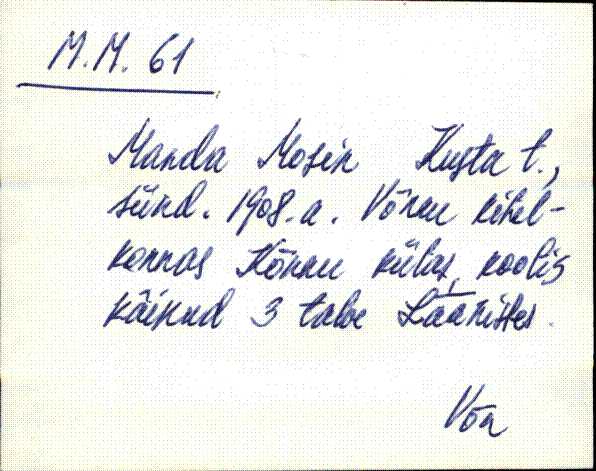 M.M. 61
Manda Mosin Kusta t.,
sünd. 1908. a. Võnnu kihel-
konnas Kõnnu külas, koolis
käinud 3 talve Läänistes.
Võn